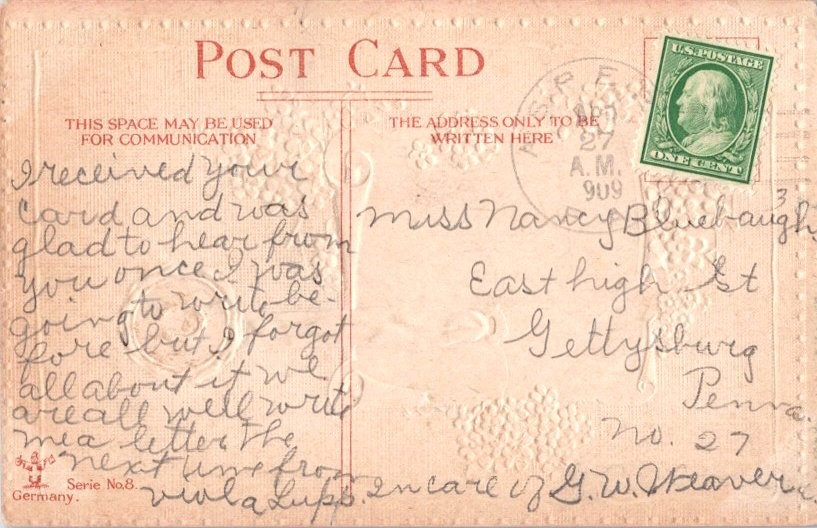 POST CARD
THIS SPACE MAY BE USED
FOR COMMUNICATION
THE ADDRESS ONLY TO BE
WRITTEN HERE
U.S. POSTAGE
ONE CENT
ASPE
27
A.M.
909
I received your
card and was
glad to hear from
you once I was
going to write be-
fore but I forgot
all about it we
are all well write
me a letter the
next time from
Viola Lupp.
Miss Nancy Bluebaugh
East high St
Gettysburg
Penna.
No. 27
In care of G. W. Weaver
Serie No. 8.
Germany.